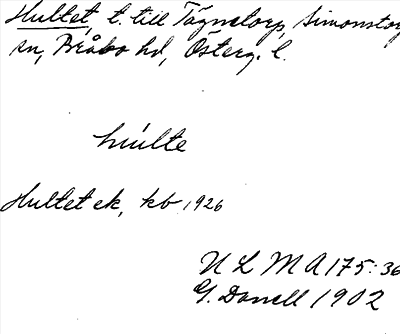 Hultet, t. till Tägnetorp, Simonstorp
sn, Bråbo hd, Österg. l.
húlte
Hultet ek, kb 1926
ULMA 175:36
G. Danell 1902